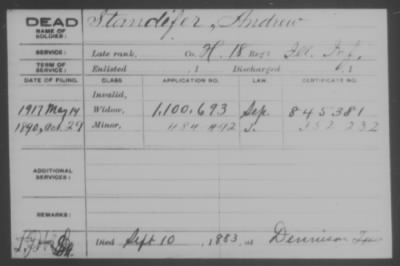 DEAD
NAME OF SOLDIER:
Standifer, Andrew
SERVICE:
Late rank, Co. H, 18 Reg't Ill. Inf.
TERM OF SERVICE:
Enlisted , 1 Discharged , 1
DATE OF FILING. CLASS. APPLICATION NO. LAW. CERTIFICATE NO.
Invalid,
1917 May 14 Widow, 1,100,693 Sep. 845381
1890, Oct. 29 Minor, 484 492 S. 332 232
ADDITIONAL SERVICES:
REMARKS:
Died Sept 10, 1883, at Dennison Tex